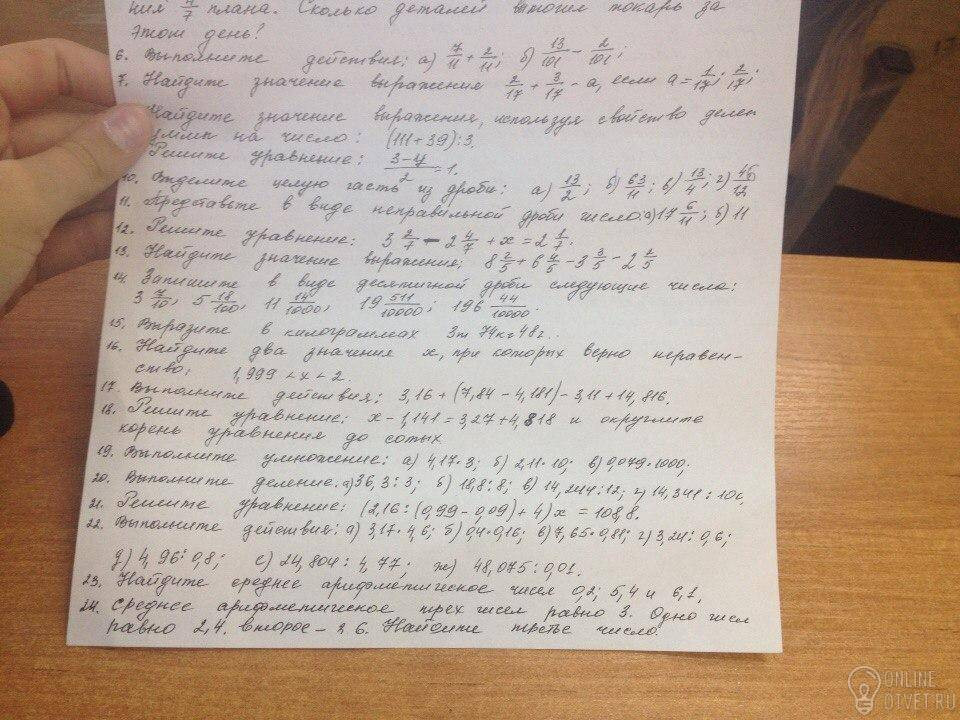 ния 4/7 плана. Сколько деталей точил токарь за
этот день?
6. Выполните действия: а) 7/11 + 2/11; б) 13/101 - 2/101;
7. Найдите значение выражения 2/17 + 3/17 - а, если а = 1/17; 2/17;
Найдите значение выражения, используя свойство делен
на число: (111 + 39) : 3.
Решите уравнение: (3-у)/2 = 1.
10. Выделите целую часть из дроби: а) 13/2; б) 63/11; в) 13/4; г) 46/12
11. Представьте в виде неправильной дроби число: а) 17 6/11; б) 11
12. Решите уравнение: 3 2/7 - 2 4/7 + х = 2 1/7.
13. Найдите значение выражения: 8 2/5 + 6 4/5 - 3 3/5 - 2 1/5
14. Запишите в виде десятичной дроби следующие числа:
3 7/10, 5 18/100, 11 14/1000, 19 511/10000; 196 44/10000.
15. Выразите в килограммах 3т 74кг 48г.
16. Найдите два значения х, при которых верно неравен-
ство: 1,999 < х < 2.
17. Выполните действия: 3,16 + (7,84 - 4,181) - 3,11 + 14,816.
18. Решите уравнение: х - 1,141 = 3,27 + 4,818 и округлите
корень уравнения до сотых
19. Выполните умножение: а) 4,17·3; б) 2,11·10; в) 0,079·1000;
20. Выполните деление: а) 36,3 : 3; б) 18,8 : 8; в) 14,244 : 12; г) 14,341 : 100,
21. Решите уравнение: (2,16 : (0,99 - 0,09) + 4) х = 108,8.
22. Выполните действия: а) 3,17·1,6; б) 0,4·0,16; в) 7,65·0,81; г) 3,24 : 0,6;
д) 4,96 : 0,8; е) 24,804 : 4,77; ж) 48,075 : 0,01.
23. Найдите среднее арифметическое чисел 0,2; 5,4 и 6,1,
24. Среднее арифметическое трех чисел равно 3. Одно числ
равно 2,4. второе - 2 6. Найдите третье число.
ONLINE
OTVET.RU